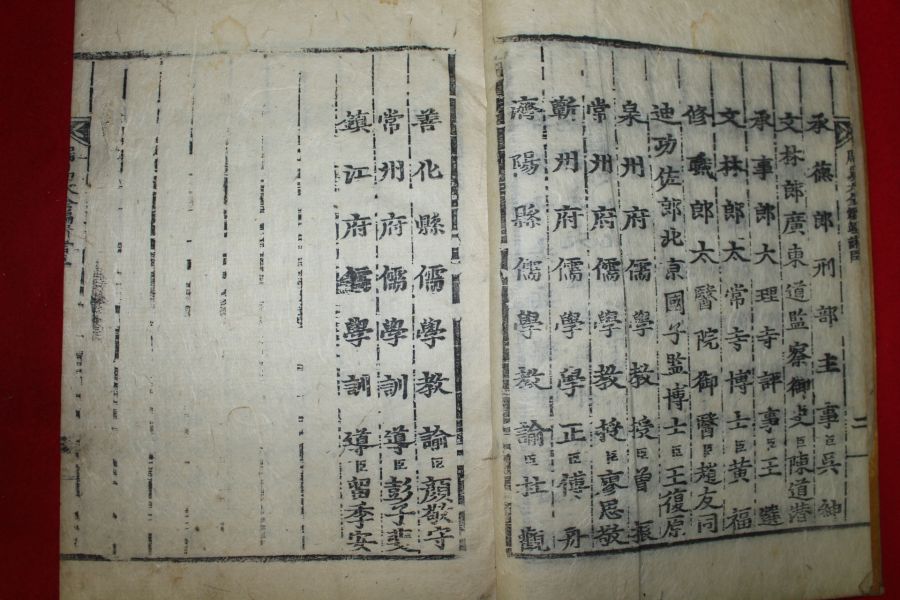 承德郎刑部主事臣吳紳
文林郎廣東道監察御史臣陳道潛
承事郎大理寺評事臣王選
文林郎太常寺博士臣黃福
修職郎太醫院御醫臣趙友同
迪功佐郎北京國子監博士臣王復原
泉州府儒學教授臣曾振
常州府儒學教授臣廖思敬
蘄州府儒學學正臣傅舟
濟陽縣儒學教諭臣杜觀
善化縣儒學教諭臣顏敬守
常州府儒學訓導臣彭子斐
鎮江府儒學訓導臣留季安
二